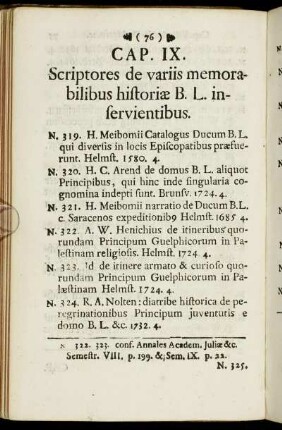 ( 76 )
CAP. IX.
Scriptores de variis memora-
bilibus historiæ B. L. in-
servientibus.
N. 319. H. Meibomii Catalogus Ducum B. L.
qui diversis in locis Episcopatibus præfue-
runt. Helmst. 1580. 4.
N. 320. H. C. Arend de domus B. L. aliquot
Principibus, qui hinc inde singularia co-
gnomina indepti sunt. Brunsv. 1724. 4.
N. 321. H. Meibomii narratio de Ducum B. L.
c. Saracenos expeditionib9 Helmst. 1685 4.
N. 322. A. W. Henichius de itineribus quo-
rundam Principum Guelphicorum in Pa-
læstinam religiosis. Helmst. 1724. 4.
N. 323. Id de itinere armato & curioso quo-
rundam Principum Guelphicorum in Pa-
læstinam Helmst. 1724. 4.
N. 324. R. A. Nolten: diatribe historica de pe-
regrinationibus Principum juventutis e
domo B. L. &c. 1732. 4.
N 322. 323. conf. Annales Academ. Juliæ &c.
Semestr. VIII. p. 199. &; Sem. IX. p. 22.
N. 325.